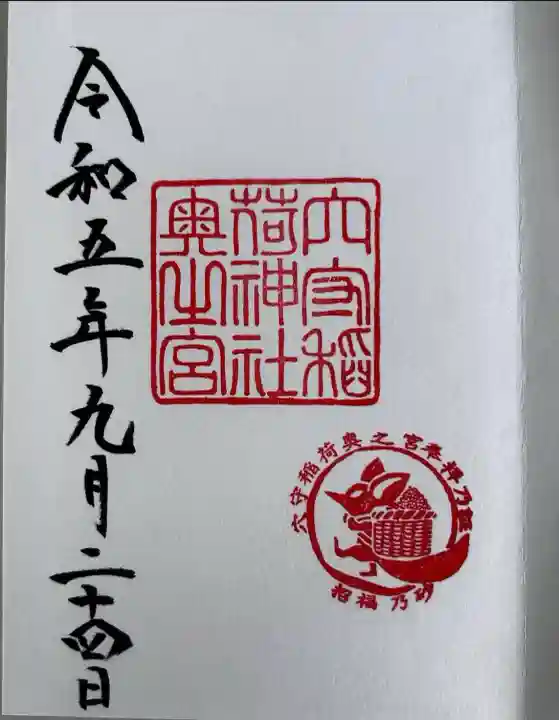 穴守稲
荷神社
奥之宮
穴守稲荷奥之宮奉拝乃証
招福乃砂
令和五年九月二十四日